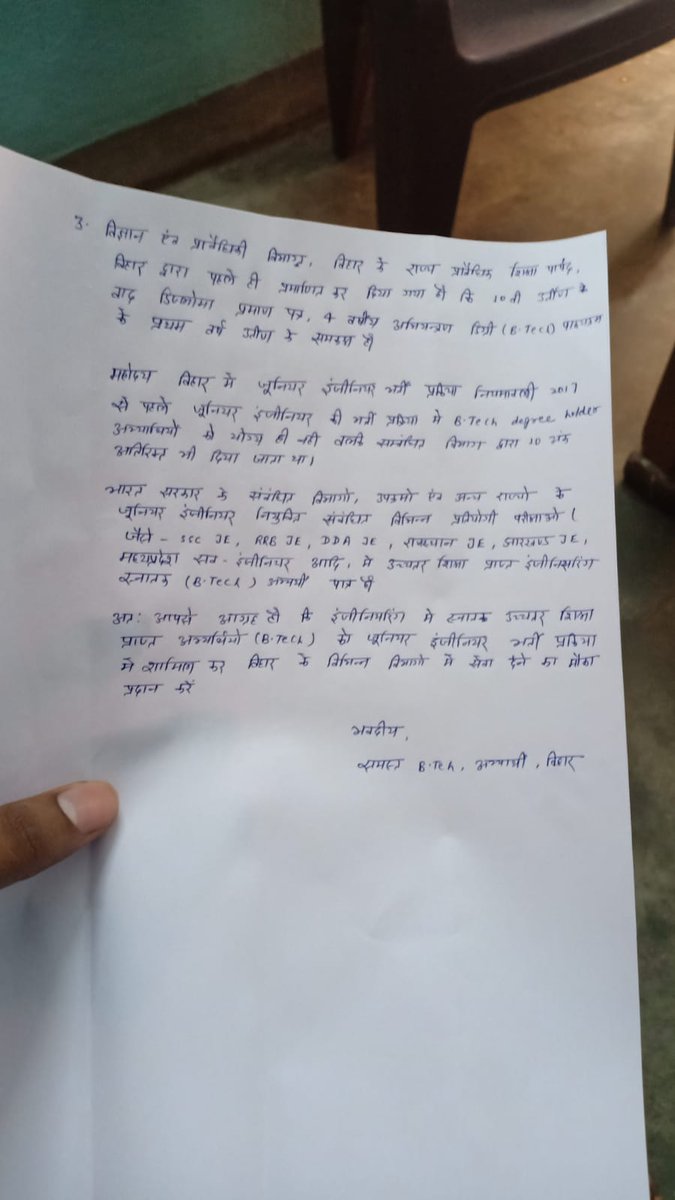 3. विज्ञान एंव प्रावैधिकी विभाग, बिहार के राज्य प्रावैधिक शिक्षा पार्षद,
बिहार द्वारा पहले ही प्रमाणित कर दिया गया है कि 10 वी उत्तीर्ण के
बाद डिप्लोमा प्रमाण पत्र, 4 वर्षीय अभियन्त्रण डिग्री (B.Tech) पाठ्यक्रम
के प्रथम वर्ष उत्तीर्ण के समकक्ष है
महोदय बिहार मे जूनियर इंजीनियर भर्ती प्रक्रिया नियमावली 2017
से पहले जूनियर इंजीनियर की भर्ती प्रक्रिया मे B.Tech degree holder
अभ्यार्थियों को योग्य ही नही बल्कि सम्बंधित विभाग द्वारा 10 अंक
अतिरिक्त भी दिया जाता था।
भारत सरकार के संबंधित विभागो, उपक्रमो एंव अन्य राज्यो के
जूनियर इंजीनियर नियुक्ति संबंधित विभिन्न प्रतियोगी परीक्षाओ (
जैसे - SCC JE, RRB JE, DDA JE, राजस्थान JE, झारखण्ड JE,
मध्यप्रदेश सब - इंजीनियर आदि, मे उच्चतर शिक्षा प्राप्त इंजीनिसरिंग
स्नातक (B.Tech) अभ्यर्थी पात्र है
अत: आपसे आग्रह है कि इंजीनियरिंग मे स्नातक उच्चतर शिक्षा
प्राप्त अभ्यर्थियो (B.Tech) को जूनियर इंजीनियर भर्ती प्रक्रिया
मे शामिल कर बिहार के विभिन्न विभागो मे सेवा देने का मौका
प्रदान करें
भवदीय,
समस्त B.Tech, अभ्यार्थी, बिहार